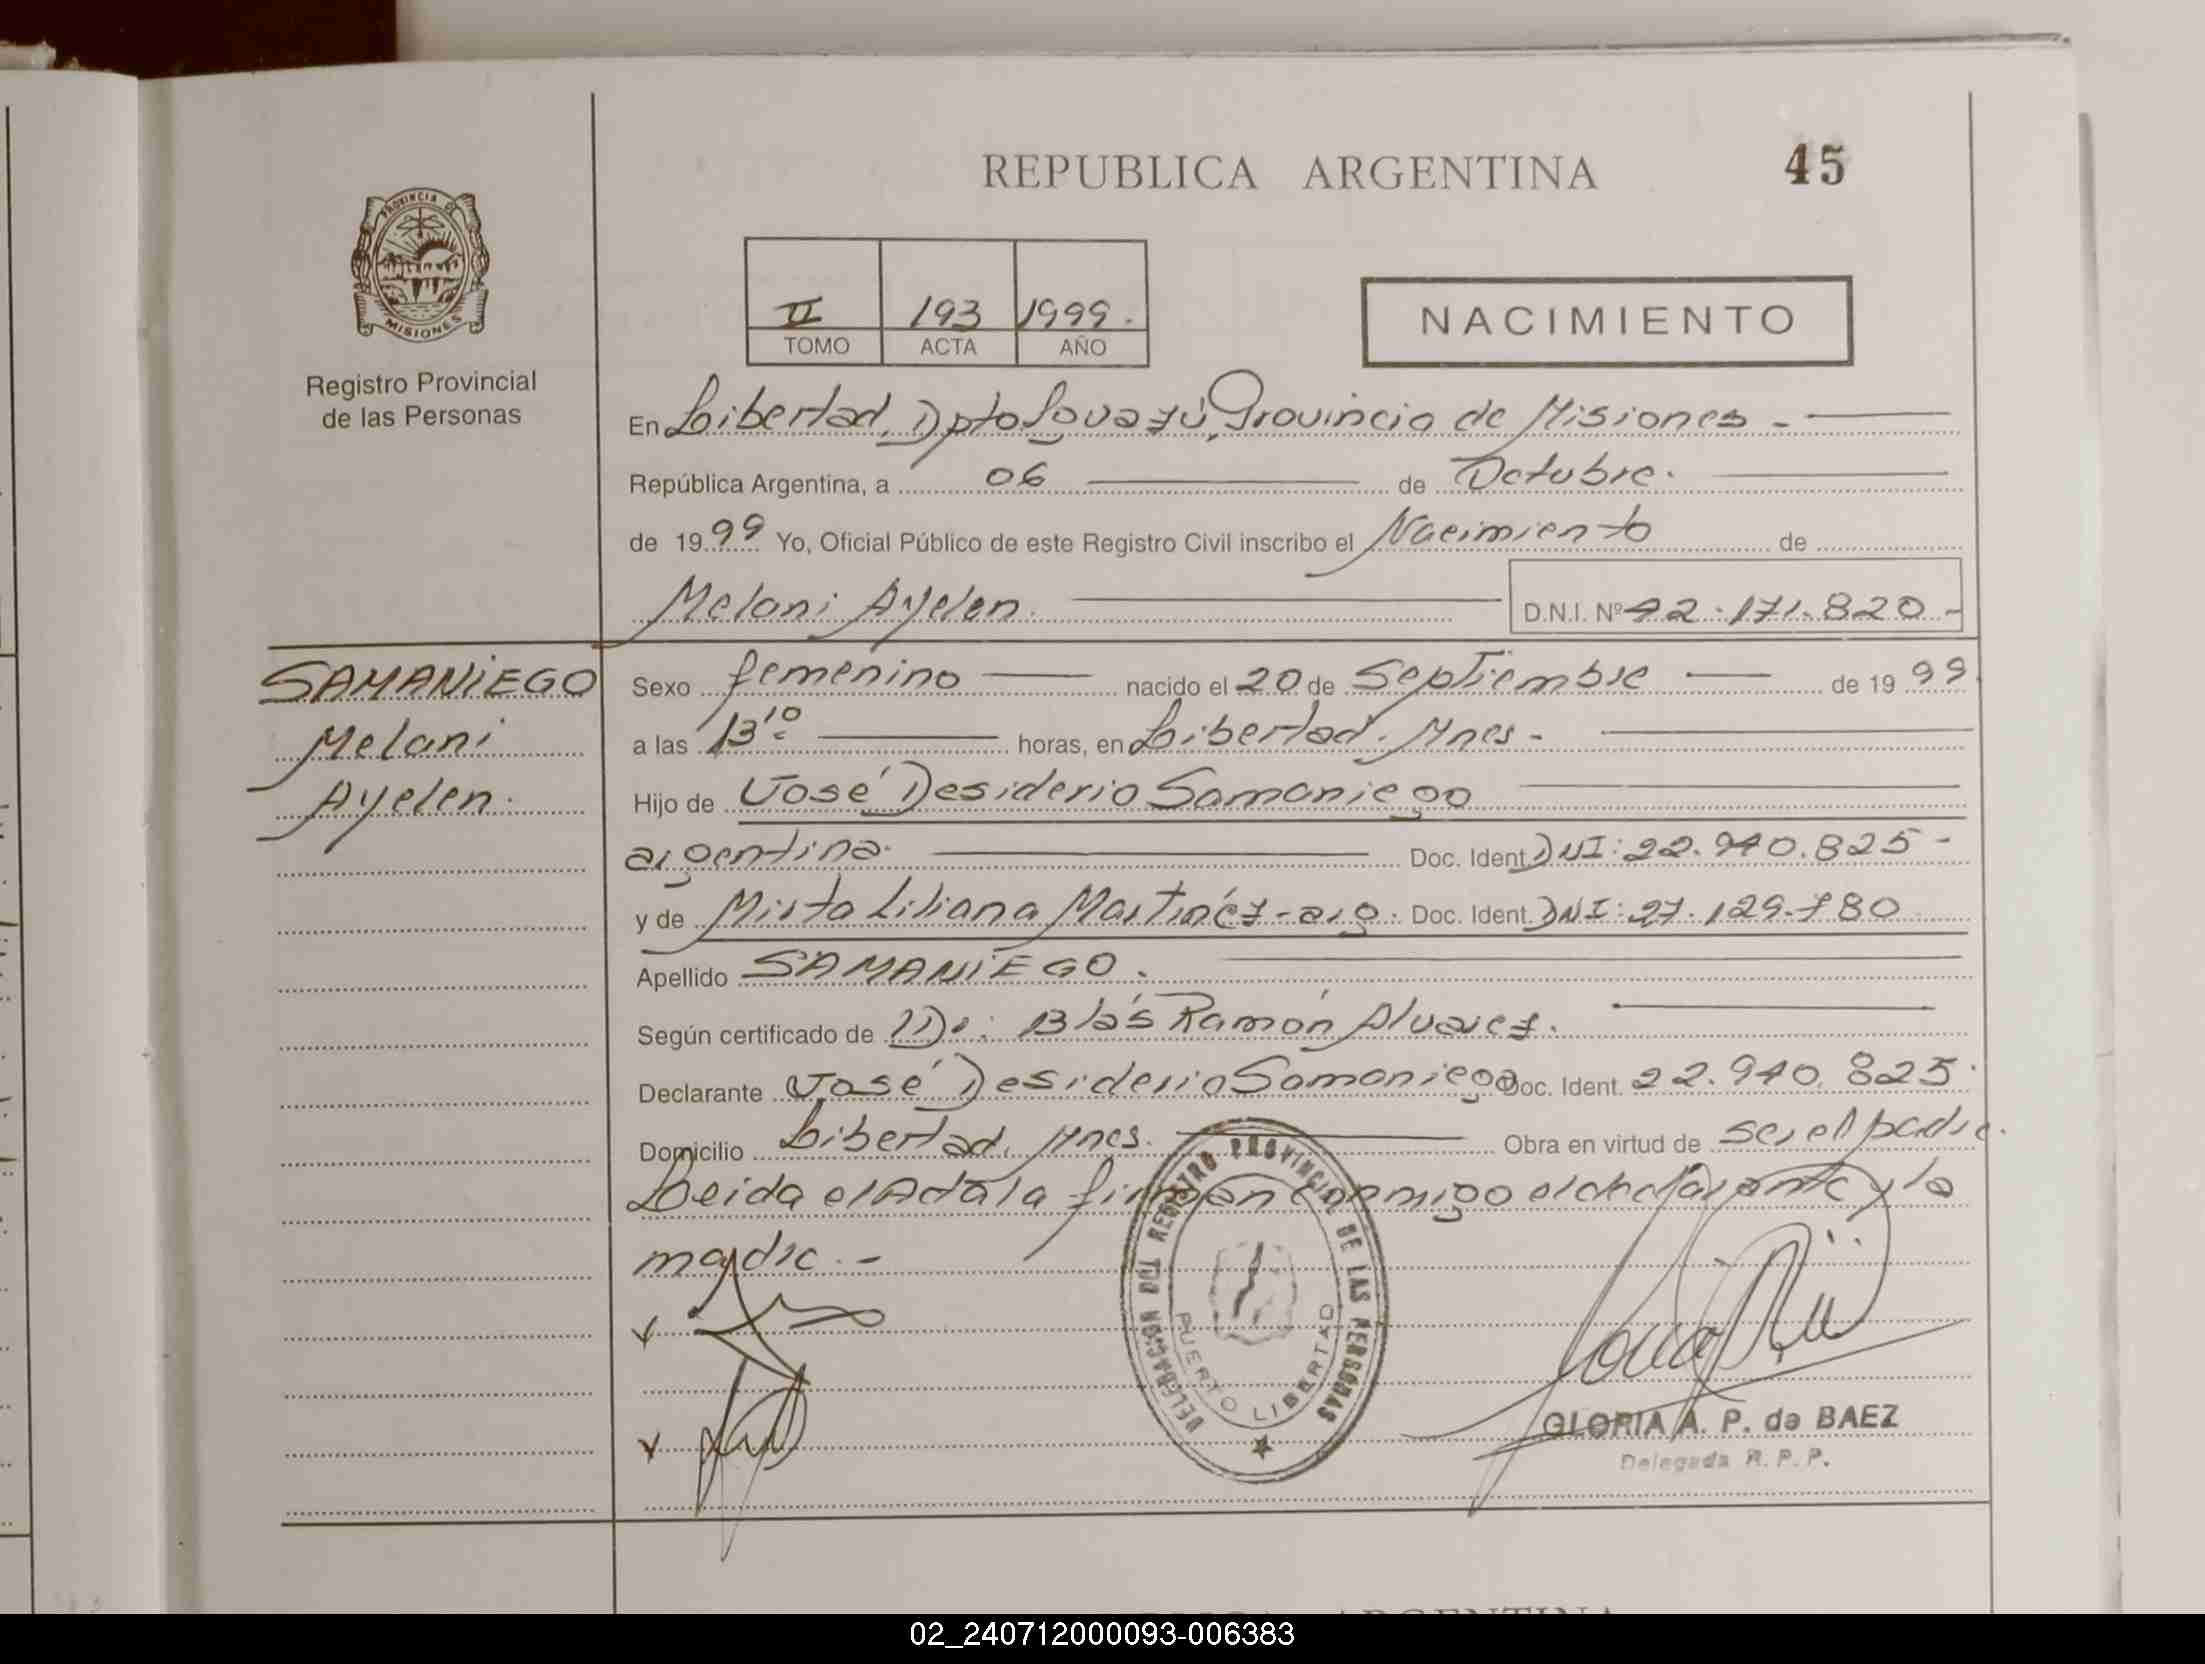 REPUBLICA ARGENTINA
45
PROVINCIA DE
MISIONES
Registro Provincial
de las Personas
II 193 1999.
TOMO ACTA AÑO
NACIMIENTO
En Libertad, Dpto Iguazú, Provincia de Misiones -
República Argentina, a 06 de Octubre.
de 1999 Yo, Oficial Público de este Registro Civil inscribo el Nacimiento de
Melani Ayelen. D.N.I. Nº 42.171.820.-
SAMANIEGO
Melani
Ayelen.
Sexo femenino nacido el 20 de Septiembre de 1999
a las 13 10 horas, en Libertad. Mnes-
Hijo de José Desiderio Samaniego
argentina. Doc. Ident DNI: 22.940.825-
y de Mirta Liliana Martínez-arg. Doc. Ident. DNI: 27.129.780
Apellido SAMANIEGO.
Según certificado de Dr: Blás Ramón Alvarez.
Declarante José Desiderio Samaniego Doc. Ident. 22.940.825.
Domicilio Libertad. Mnes. Obra en virtud de ser el padre.
Leida el Acta la firman conmigo el declarante y la
madre.-
DELEGACION DEL REGISTRO PROVINCIAL DE LAS PERSONAS
PUERTO LIBERTAD
GLORIA A. P. de BAEZ
Delegada R. P. P.
ARGENTINA
02_240712000093-006383